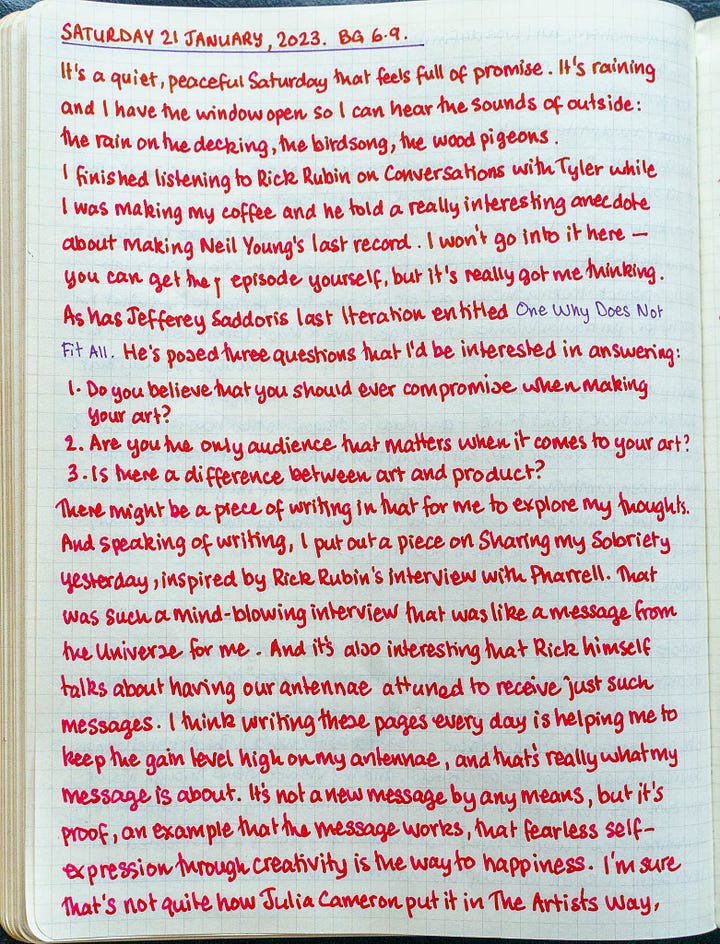 SATURDAY 21 JANUARY, 2023. BG 6.9.
It's a quiet, peaceful Saturday that feels full of promise. It's raining
and I have the window open so I can hear the sounds of outside:
the rain on the decking, the birdsong, the wood pigeons.
I finished listening to Rick Rubin on Conversations with Tyler while
I was making my coffee and he told a really interesting anecdote
about making Neil Young's last record. I won't go into it here —
you can get the episode yourself, but it's really got me thinking.
As has Jefferey Saddoris last Iteration entitled One Why Does Not
Fit All. He's posed three questions that I'd be interested in answering:
1. Do you believe that you should ever compromise when making
your art?
2. Are you the only audience that matters when it comes to your art?
3. Is there a difference between art and product?
There might be a piece of writing in that for me to explore my thoughts.
And speaking of writing, I put out a piece on Sharing my Sobriety
yesterday, inspired by Rick Rubin's interview with Pharrell. That
was such a mind-blowing interview that was like a message from
the Universe for me. And it's also interesting that Rick himself
talks about having our antennae attuned to receive just such
messages. I think writing these pages every day is helping me to
keep the gain level high on my antennae, and that's really what my
message is about. It's not a new message by any means, but it's
proof, an example that the message works, that fearless self-
expression through creativity is the way to happiness. I'm sure
that's not quite how Julia Cameron put it in The Artists Way,